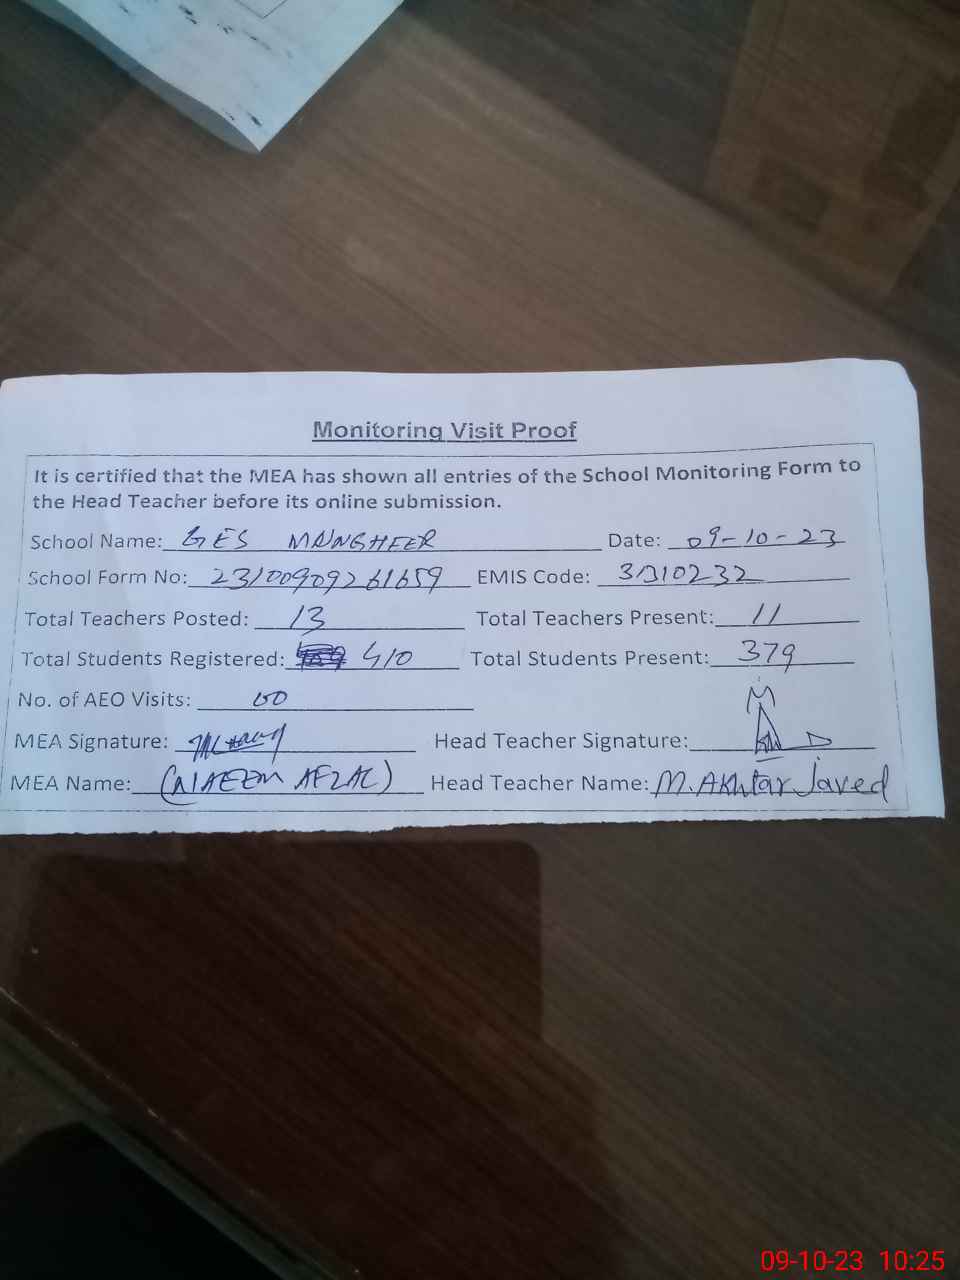 Monitoring Visit Proof
It is certified that the MEA has shown all entries of the School Monitoring Form to
the Head Teacher before its online submission.
School Name: GES MUNGHEER Date: 09-10-23
School Form No: 23100909261659 EMIS Code: 31310232
Total Teachers Posted: 13 Total Teachers Present: 11
Total Students Registered: 410 Total Students Present: 379
No. of AEO Visits: 00
MEA Signature: Head Teacher Signature:
MEA Name: (NAEEM AFZAL) Head Teacher Name: M. Akhtar Javed
09-10-23 10:25